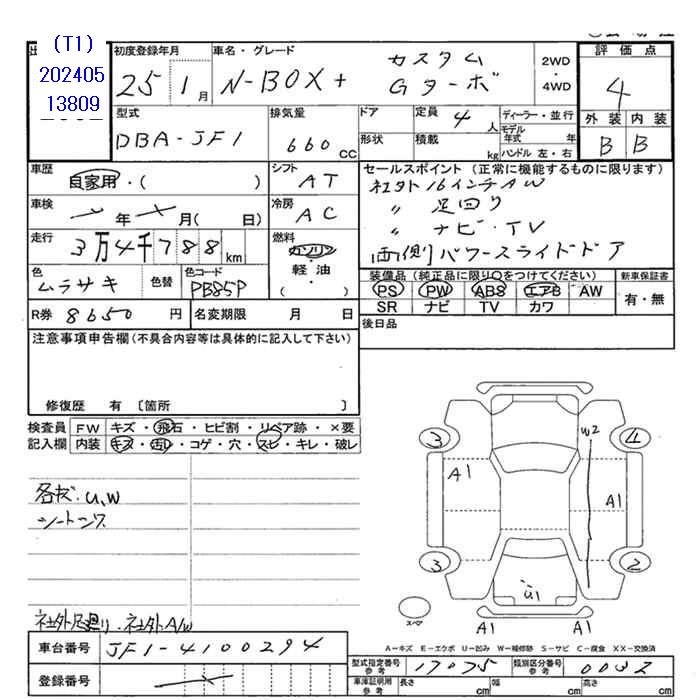 (T1)
202405
13809
初度登録年月
25 1月
車名・グレード
N-BOX+ カスタム
Gターボ
2WD
・
4WD
評価点
4
外装 内装
B B
型式
DBA-JF1
排気量
660 CC
ドア
形状
定員 4 人
積載 kg
ディーラー・並行
モデル年式 年
ハンドル 左・右
車歴
自家用・( )
シフト
AT
車検
年 月( 日)
冷房
AC
走行
3万4千788km
燃料
ガソリン
・
軽・油
・
( )
色
ムラサキ
色替
色コード
PB85P
R券 8650 円
名変期限 月 日
セールスポイント (正常に機能するものに限ります)
社外16インチAW
〃 足回り
〃 ナビ・TV
両側パワースライドドア
装備品(純正品に限り○をつけてください)
PS PW ABS エアB AW
SR ナビ TV カワ
新車保証書
有・無
後日品
注意事項申告欄(不具合内容等は具体的に記入して下さい)
修復歴 有 〔箇所 〕
検査員記入欄
FW キズ・飛石・ヒビ割・リペア跡・×要
内装 キズ・汚れ・コゲ・穴・スレ・キレ・破レ
各キズ・U、W
社外足廻り・社外A/W
3 4
W2
A1 A1
3 2
U1
スペア
A1 A1
A-キズ E-エクボ U-凹み W-補修跡 S-サビ C-腐食 XX-交換済
車台番号 JF1-4100294
登録番号
型式指定番号 参考 17075
類別区分番号 参考 0032
車庫証明用 参考 長さ cm 幅 cm 高さ cm